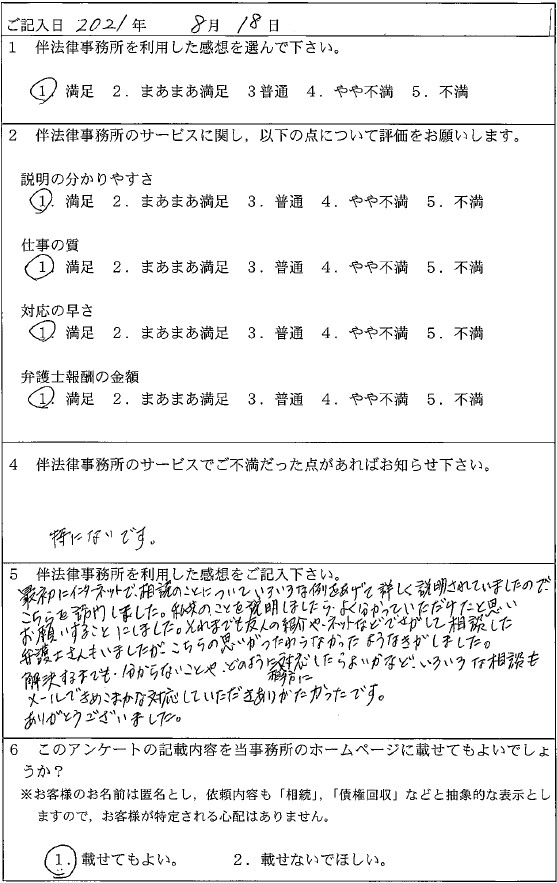 ご記入日 2021年 8月 18日
1 伴法律事務所を利用した感想を選んで下さい。
1. 満足 2. まあまあ満足 3 普通 4. やや不満 5. 不満
2 伴法律事務所のサービスに関し，以下の点について評価をお願いします。
説明の分かりやすさ
1. 満足 2. まあまあ満足 3. 普通 4. やや不満 5. 不満
仕事の質
1. 満足 2. まあまあ満足 3. 普通 4. やや不満 5. 不満
対応の早さ
1. 満足 2. まあまあ満足 3. 普通 4. やや不満 5. 不満
弁護士報酬の金額
1. 満足 2. まあまあ満足 3. 普通 4. やや不満 5. 不満
4 伴法律事務所のサービスでご不満だった点があればお知らせ下さい。
特にないです。
5 伴法律事務所を利用した感想をご記入下さい。
最初にインターネットで、相続のことについていろいろな例をあげて詳しく説明されていましたので
こちらを訪門しました。私共のことを説明しましたら、よく分かっていただけたと思い
お願いすることにしました。それまでも友人の紹介やネットなどでさがして相談した
弁護士さんもいましたが、こちらの思いがつたわらなかったようなきがしました。
解決するまでも、分からないことや、どのように対応したらよいかなど、いろいろな相談も
メールできめこまかな対応していただきありがたかったです。
ありがとうございました。
6 このアンケートの記載内容を当事務所のホームページに載せてもよいでしょ
うか？
※お客様のお名前は匿名とし，依頼内容も「相続」，「債権回収」などと抽象的な表示とし
ますので，お客様が特定される心配はありません。
1. 載せてもよい。 2. 載せないでほしい。